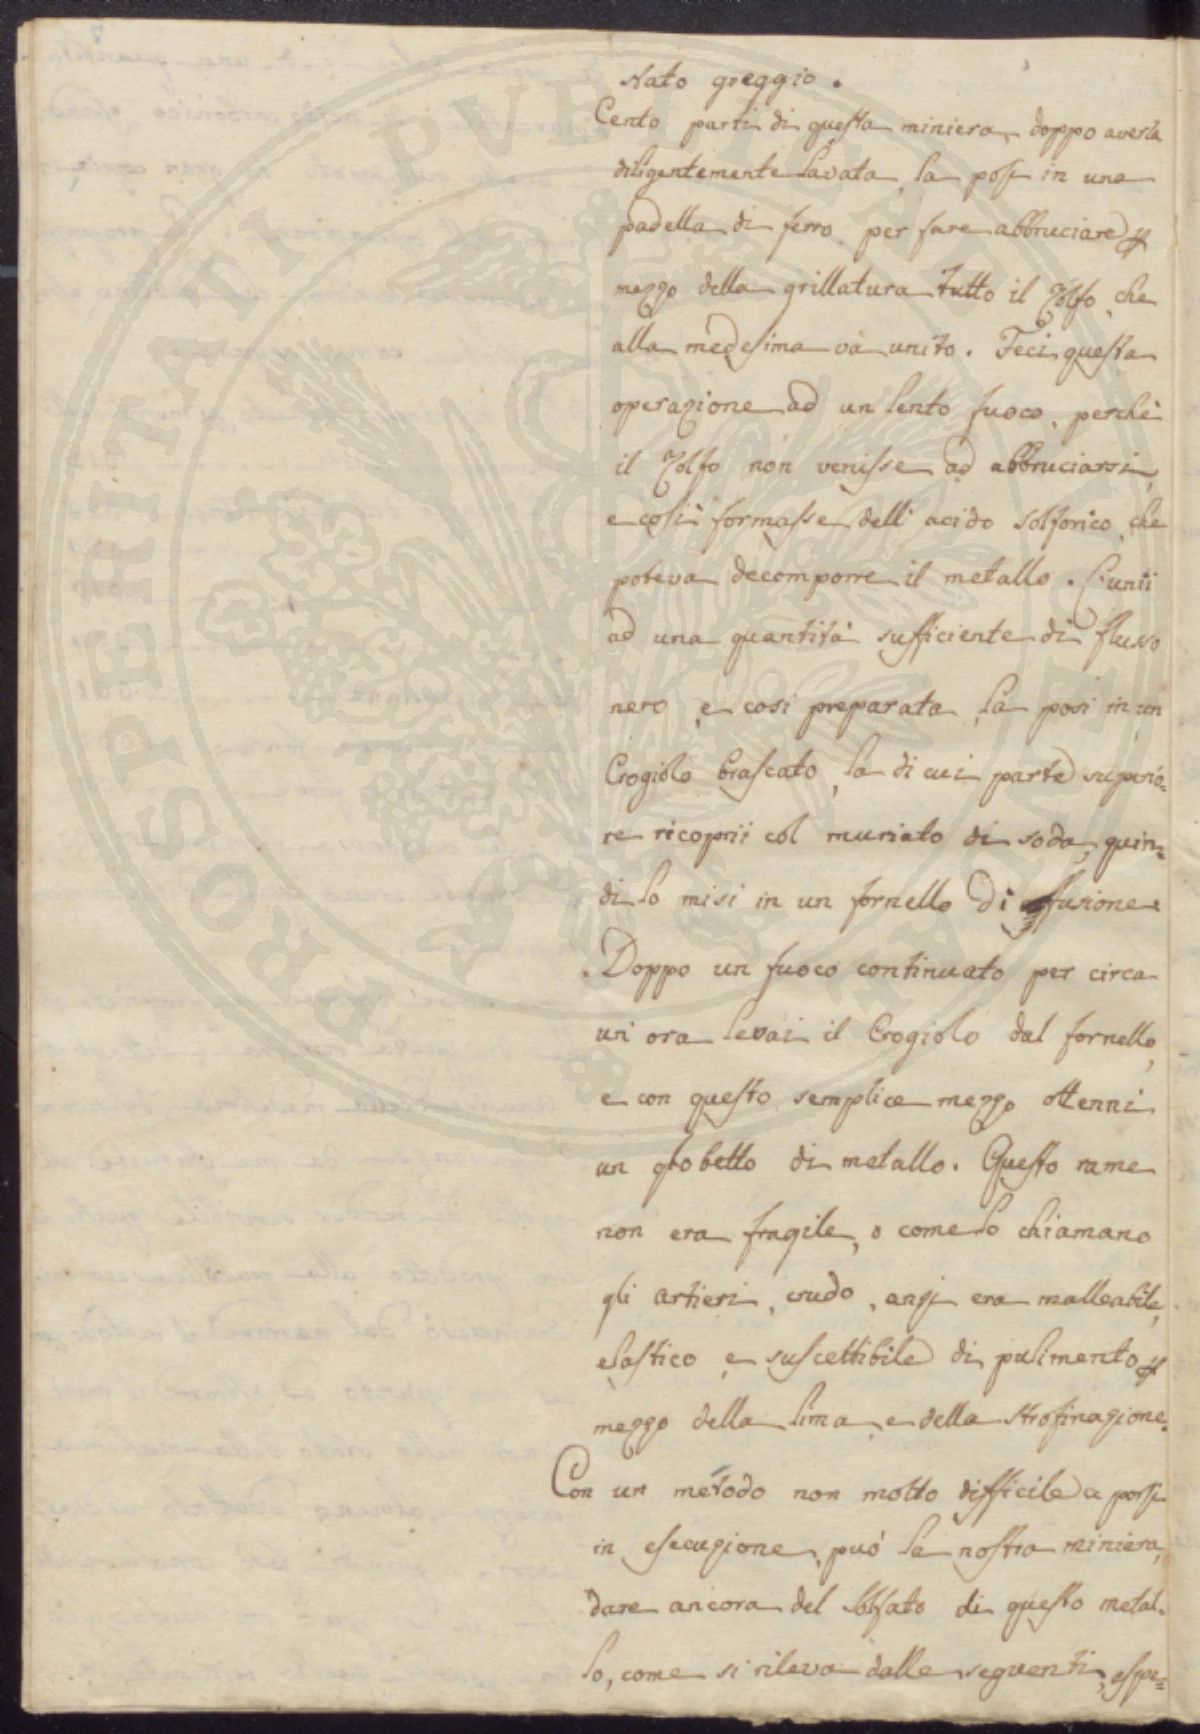 stato greggio.
Cento parti di questa miniera, doppo averla
diligentemente lavata, la posi in una
padella di ferro, per fare abbruciare p
mezzo della grillatura tutto il Zolfo, che
alla medesima và unito. Feci questa
operazione ad un lento fuoco, perchè
il Zolfo non venisse ad abbruciarsi,
e così formasse dell' acido solforico, che
poteva decomporre il metallo. L'unii
ad una quantità sufficiente di flusso
nero, e così preparata, la posi in un
Crogiolo brascato, la di cui parte superio-
re ricoprii col muriato di soda, quin=
di lo misi in un fornello di fusione.
Doppo un fuoco continuato per circa
un' ora levai il Crogiolo dal fornello,
e con questo semplice mezzo ottenni
un globetto di metallo. Questo rame
non era fragile, o come lo chiamano
gli artieri, crudo, anzi era malleabile,
elastico, e suscettibile di pulimento p
mezzo della lima, e della strofinazione.
Con un metodo non molto difficile a porsi
in esecuzione, può la nostra miniera,
dare ancora del Solfato di questo metal-
lo, come si rileva dalle seguenti, espe=
PROSPERITATI PUBLICAE